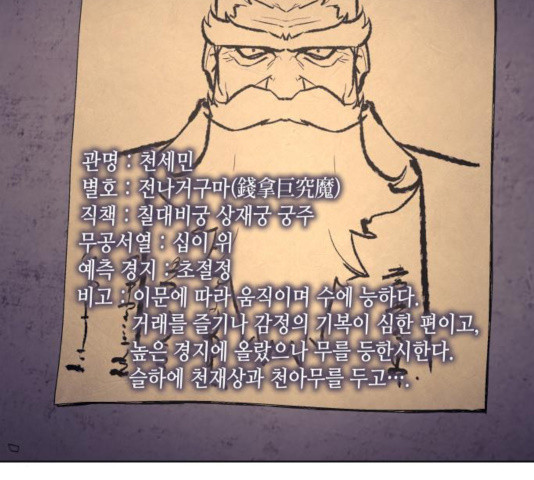 관명 : 천세민
별호 : 전나거구마(錢拿巨究魔)
직책 : 칠대비궁 상재궁 궁주
무공서열 : 십이 위
예측 경지 : 초절정
비고 : 이문에 따라 움직이며 수에 능하다.
거래를 즐기나 감정의 기복이 심한 편이고,
높은 경지에 올랐으나 무를 등한시한다.
슬하에 천재상과 천아무를 두고….